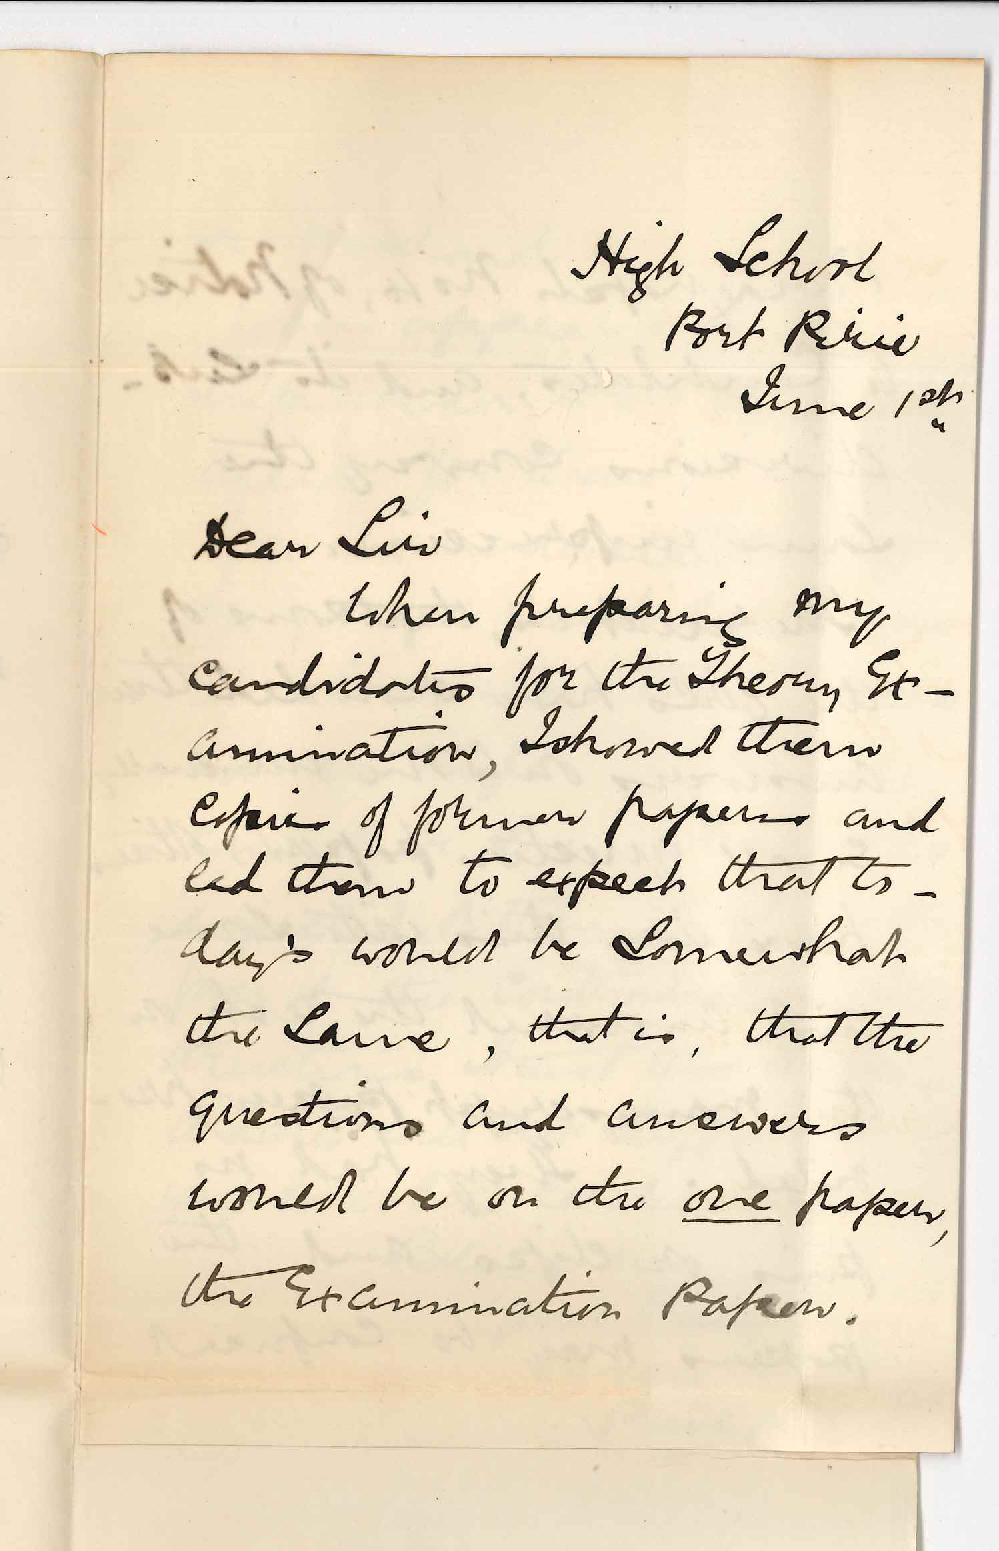 High School
Port Pirie
June 1st
Dear Sir
When preparing my
candidates for the Theory Ex-
amination, I showed them
copies of former papers and
led them to expect that to-
day's would be Somewhat
the Same, that is, that the
questions and answers
would be on the one paper,
the Examination Paper.